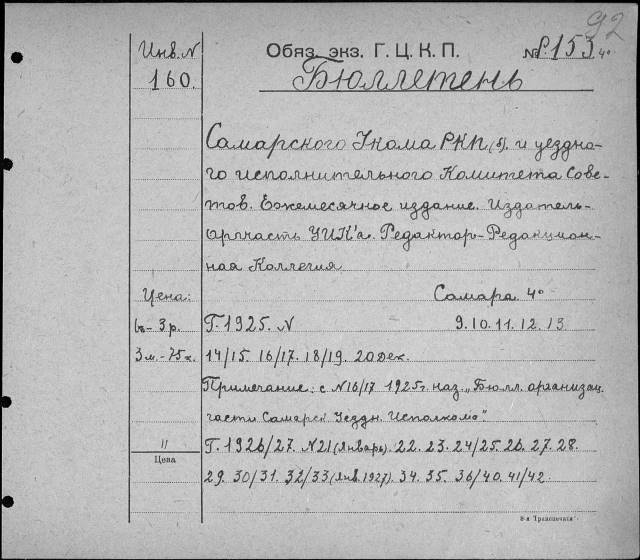 92
Инв. N Обяз. экз. Г. Ц. К. П. № Р. 153 4°
160. Бюллетень
Самарского Укома РКП (б). и уездно-
го исполнительного Комитета Сове-
тов. Ежемесячное издание. Издатель-
оргчасть УИК'а. Редактор-Редакцион-
ная Коллегия
Цена: Самара 4°
6 м - 3 р. Г. 1925. N 9. 10. 11. 12. 13
3 м. - 75 к. 14/15. 16/17. 18/19. 20 дек.
Примечание: с N 16/17 1925 г. наз. „Бюлл. организац.
части Самарск. Уездн. Исполкома".
" Г. 1926/27. N 21 (январь). 22. 23. 24/25. 26. 27. 28.
Цена
29. 30/31. 32/33 (янв. 1927). 34. 35. 36/40. 41/42.
8-я Транспечати